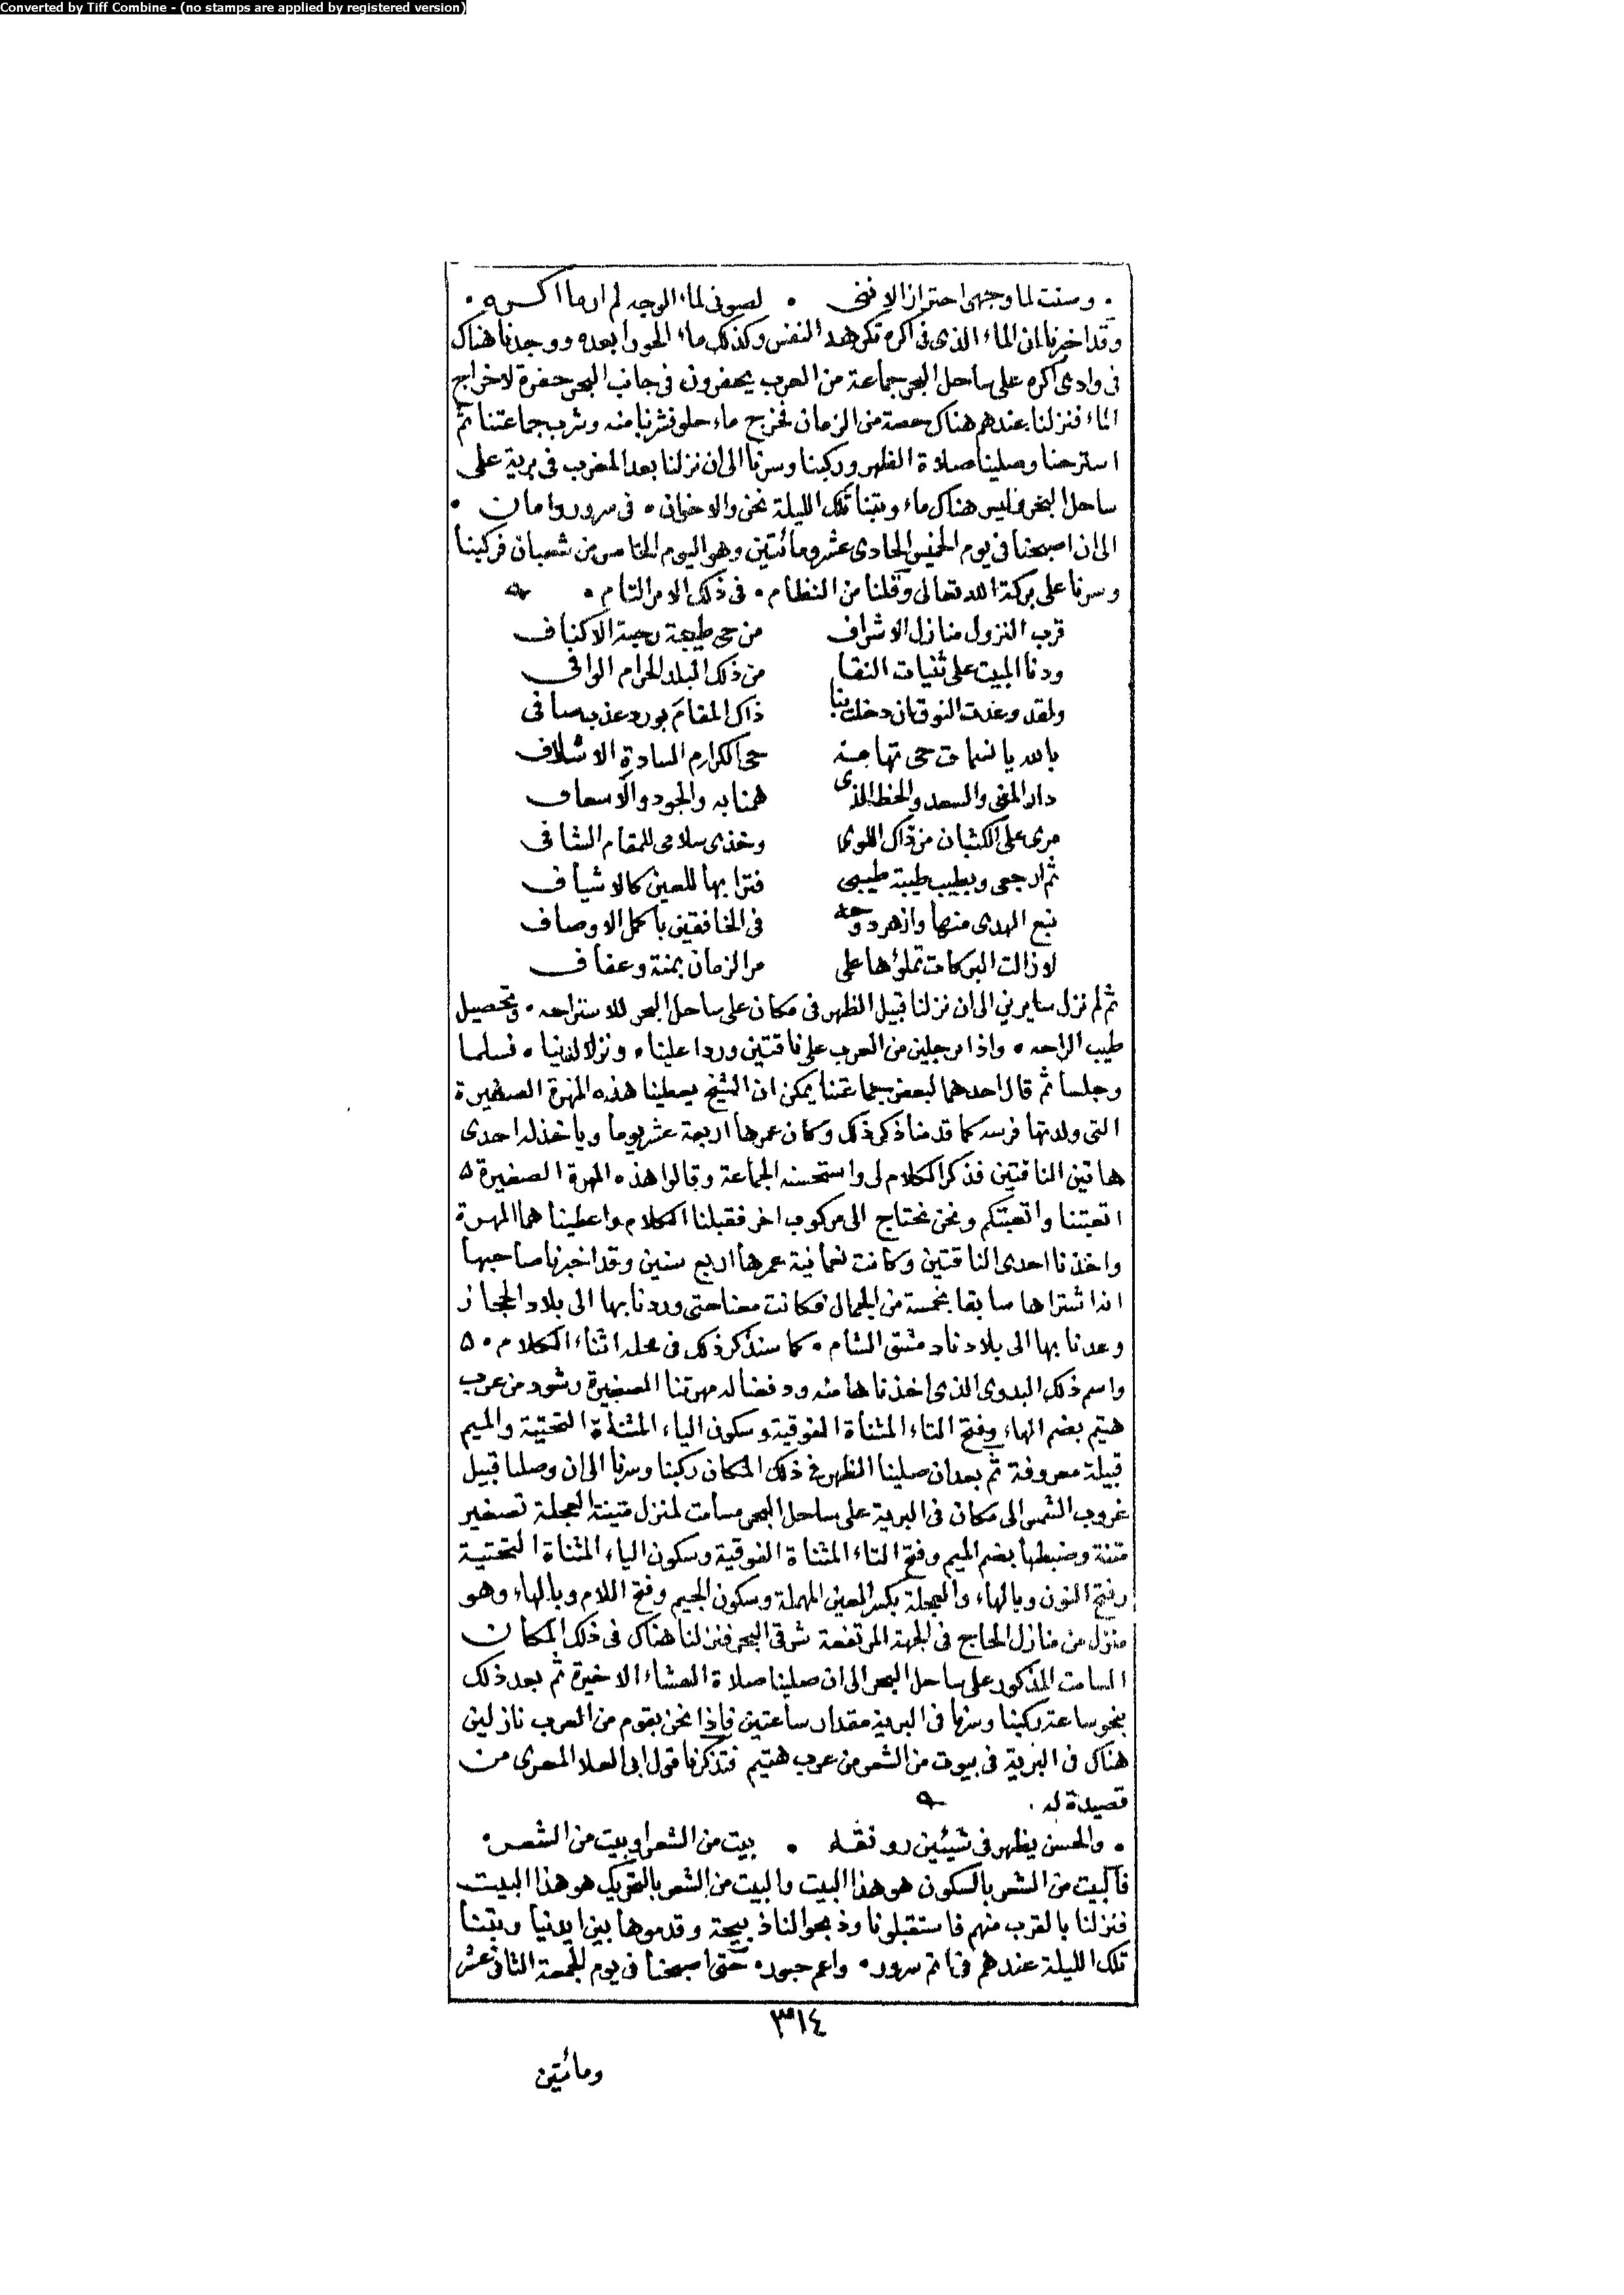 Converted by Tiff Combine - (no stamps are applied by registered version)
• وصنت لما وجهى احتراز الاننى • لصونى لماء الوجه لم ارما اكره •
وقد اخبرنا ان الماء الذى فى اكره تكرهه النفس وكذلك ماء الحورا بعده ووجدنا هناك
فى وادى اكره على ساحل البحر جماعة من العرب يحفرون فى جانب البحر حفرة لاخراج
الماء فنزلنا عندهم هناك حصة من الزمان فخرج ماء حلو فشربنا منه وشرب جماعتنا ثم
استرحنا وصلينا صلاة الظهر وركبنا وسرنا الى ان نزلنا بعد المغرب فى برية على
ساحل البحر وليس هناك ماء وبتنا تلك الليلة نحن والاخوان • فى سرور وامان •
الى ان اصبحنا فى يوم الخميس الحادى عشر ومائتين وهو اليوم الخامس من شعبان فركبنا
وسرنا على بركة الله تعالى وقلنا من النظام • فى ذلك الامر التام •
قرب النزول منازل الاشراف من حى طيبة رحبة الاكناف
ودنا المبيت على ثنيات النقا من ذلك البلد الحرام الوافى
ولقد وعدت النوق ان دخلت بنا ذاك المقام بورد عذب صافى
بالله يا نسمات حى تهامة حى الكرام السادة الاشلاف
دار المنى والسعد والحظ الذى همنا به والجود والاسعاف
مرى على الكثبان من ذاك اللوى وخذى سلامى للمقام الشافى
ثم ارجعى وبطيب طيبة طيبى فترابها للعين كالاشياف
نبع الهدى منها وازهر دوحه فى الخافقين باكمل الاوصاف
لا زالت البركات تملؤها على مر الزمان بمنة وعفاف
ثم لم نزل سايرين الى ان نزلنا قبيل الظهر فى مكان على ساحل البحر للاستراحه • وتحصيل
طيب الراحه • واذا برجلين من العرب على ناقتين وردا علينا • ونزلا لدينا • فسلما
وجلسا ثم قال احدهما لبعض جماعتنا يمكن ان الشيخ يعطينا هذه المهرة الصغيرة
التى ولدتها فرسه كما قدمنا ذكر ذلك وكان عمرها اربعة عشر يوما وياخذ له احدى
هاتين الناقتين فذكر الكلام لى واستحسنه الجماعة وقالوا هذه المهرة الصغيرة ٥
اتعبتنا واتعبتكم ونحن نحتاج الى مركوب اخر فقبلنا الكلام واعطيناهما المهرة
واخذنا احدى الناقتين وكانت نعمانية عمرها اربع سنين وقد اخبرنا صاحبها
انه اشتراها سابقا بخمسة من الجمال فكانت معنا حتى وردنا بها الى بلاد الحجاز
وعدنا بها الى بلادنا دمشق الشام • كما سنذكر ذلك فى محله اثناء الكلام • ٥
واسم ذلك البدوى الذى اخذناها منه ودفعنا له مهرتنا الصغيرة رشود من عرب
هتيم بضم الهاء وفتح التاء المثناة الفوقية وسكون الياء المثناة التحتية والميم
قبيلة معروفة ثم بعد ان صلينا الظهر فى ذلك المكان ركبنا وسرنا الى ان وصلنا قبيل
غروب الشمس الى مكان فى البرية على ساحل البحر مسامت لمنزل متينة العجلة تصغير
متنة وضبطها بضم الميم وفتح التاء المثناة الفوقية وسكون الياء المثناة التحتية
وفتح النون وبالهاء والعجلة بكسر العين المهملة وسكون الجيم وفتح اللام وبالهاء وهو
منزل من منازل الحاج فى الجهة المرتفعة شرقى البحر فنزلنا هناك فى ذلك المكان
المسامت المذكور على ساحل البحر الى ان صلينا صلاة العشاء الاخيرة ثم بعد ذلك
بنحو ساعة ركبنا وسرنا فى البرية مقدار ساعتين فاذا نحن بقوم من العرب نازلين
هناك فى البرية فى بيوت من الشعر من عرب هتيم فتذكرنا قول ابى العلا المعرى من
قصيدة له •
• والحسن يظهر فى شيئين رونقه • بيت من الشعر او بيت من الشعر •
فالبيت من الشعر بالسكون هو هذا البيت والبيت من الشعر بالتحريك هو هذا البيت
فنزلنا بالقرب منهم فاستقبلونا وذبحوا لنا ذبيحة وقدموها بين ايدينا وبتنا
تلك الليلة عندهم فى اتم سرور • واعم حبور • حتى اصبحنا فى يوم الجمعة الثانى عشر
٣١٤
ومائتين